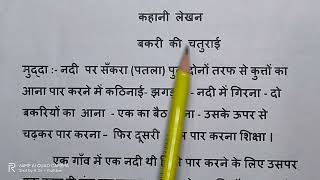 कहानी लेखन
बकरी की चतुराई
मुद्दा :- नदी पर सँकरा (पतला) दोनों तरफ से कुत्तों का
आना पार करने में कठिनाई- नदी में गिरना - दो
बकरियों का आना - एक का उसके ऊपर से
चढ़कर पार करना - फिर दूसरी पार करना शिक्षा ।
एक गाँव में एक नदी थी पार करने के लिए उसपर